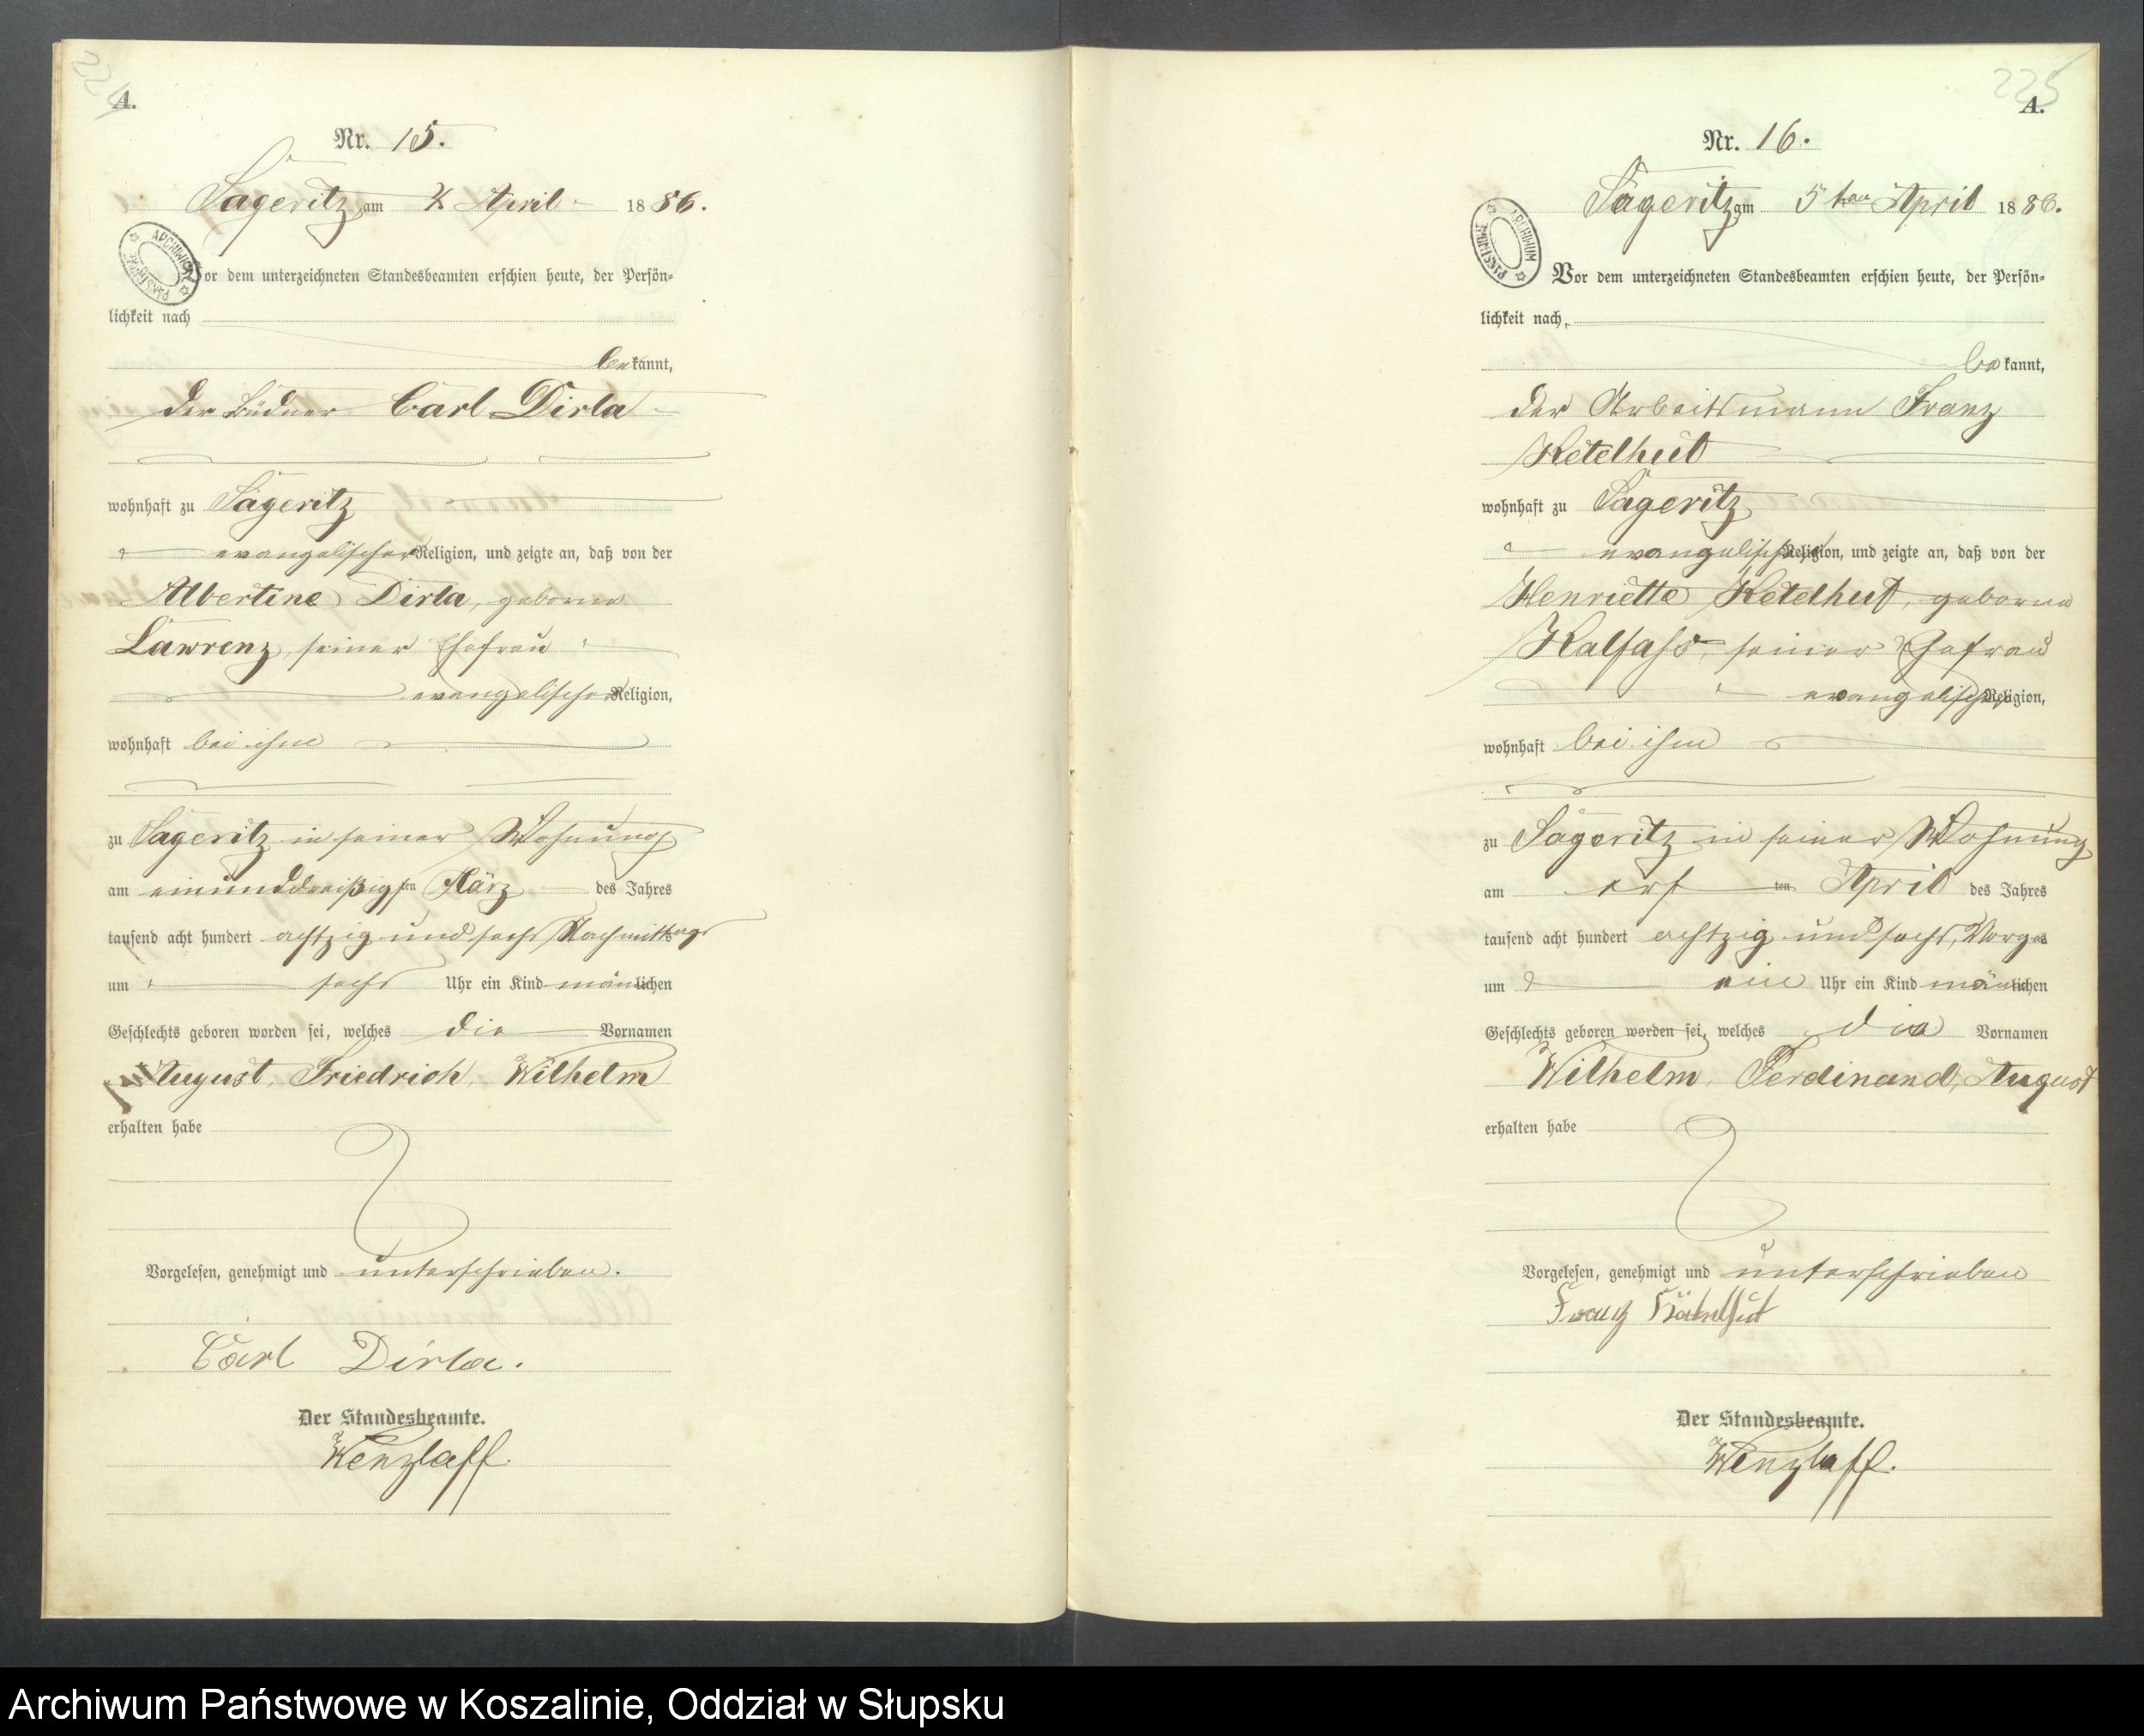 224
A.
Nr. 15.
Sageritz am 4 April 1886.
ARCHIWUM PAŃSTWOWE
or dem unterzeichneten Standesbeamten erschien heute, der Persön-
lichkeit nach
bekannt,
der Büdner Carl Dirla
wohnhaft zu Sageritz
evangelischer Religion, und zeigte an, daß von der
Albertine Dirla, geborne
Lawrenz, seiner Ehefrau
evangelischer Religion,
wohnhaft bei ihm
zu Sageritz in seiner Wohnung
am einunddreißigsten März des Jahres
tausend acht hundert achtzig und sechs Nachmittags
um sechs Uhr ein Kind mänlichen
Geschlechts geboren worden sei, welches die Vornamen
August, Friedrich, Wilhelm
erhalten habe
Vorgelesen, genehmigt und unterschrieben.
Carl Dirla.
Der Standesbeamte.
Wenzlaff.
225
A.
Nr. 16.
Sageritz am 5ten April 1886.
ARCHIWUM PAŃSTWOWE
Vor dem unterzeichneten Standesbeamten erschien heute, der Persön-
lichkeit nach
bekannt,
der Arbeitsmann Franz
Ketelhut
wohnhaft zu Sageritz
evangelischer Religion, und zeigte an, daß von der
Henriette Ketelhut, geborne
Kalfass, seiner Ehefrau
evangelischer Religion,
wohnhaft bei ihm
zu Sageritz in seiner Wohnung
am ersten April des Jahres
tausend acht hundert achtzig und sechs, Morgens
um ein Uhr ein Kind mänlichen
Geschlechts geboren worden sei, welches die Vornamen
Wilhelm, Ferdinand, August
erhalten habe
Vorgelesen, genehmigt und unterschrieben
Franz Kätelhut
Der Standesbeamte.
Wenzlaff.
Archiwum Państwowe w Koszalinie, Oddział w Słupsku